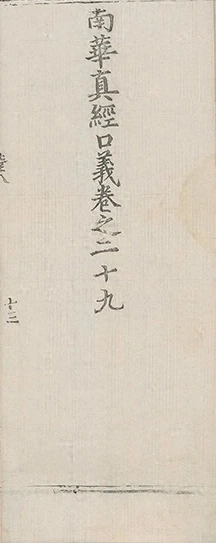 南華真經口義卷之二十九
十三